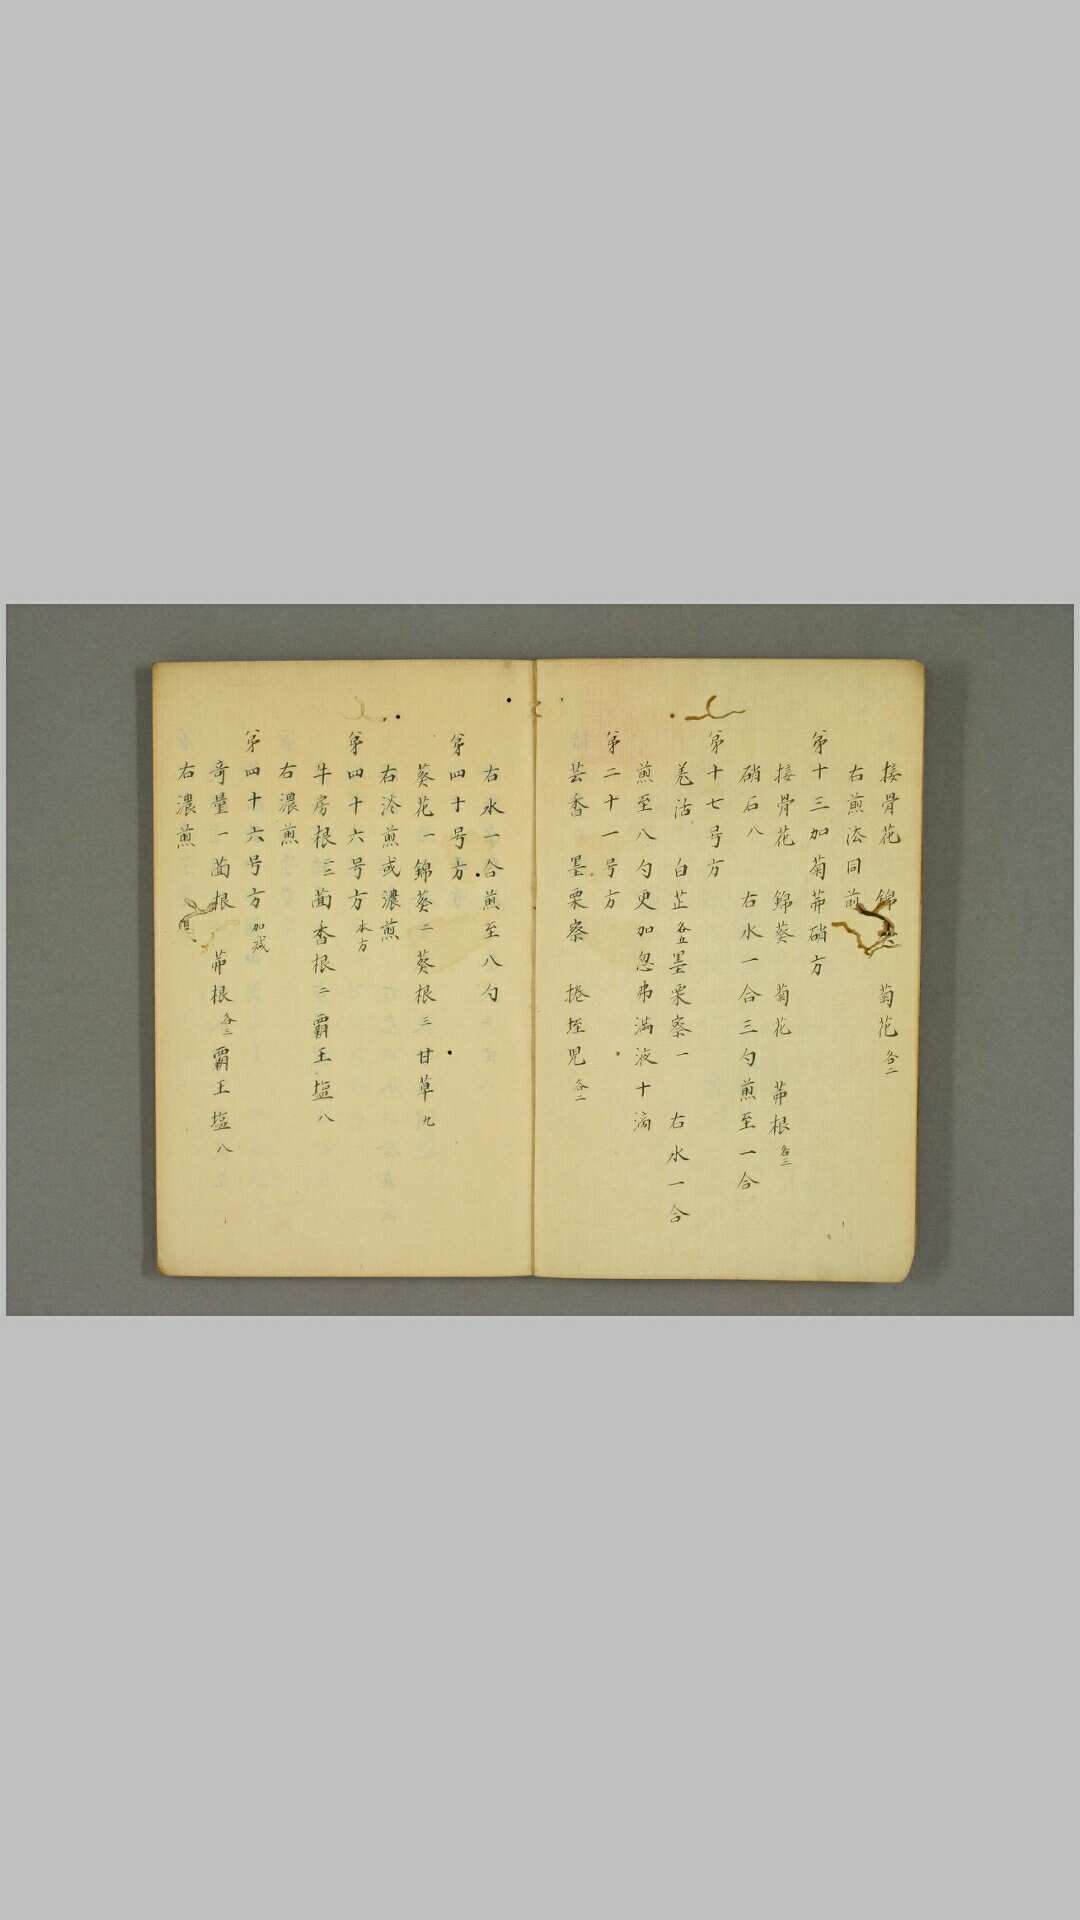 接骨花　錦　菊花各二
右煎法同前
第十三加菊茀硝方
接骨花　錦葵　菊花　茀根各三
硝石八　右水一合三勺煎至一合
第十七号方
羌活　白芷各五墨栗察一　右水一合
煎至八勺更加忽弗満液十滴
第二十一号方
芸香　墨栗察　捲垤児各二
右水一合煎至八勺
第四十号方
葵花一錦葵二葵根三甘草九
右泠煎或濃煎
第四十六号方本方
牛房根三茴香根二覇王塩八
右濃煎
第四十六号方加减
竒量一茴根　茀根各三覇王塩八
右濃煎